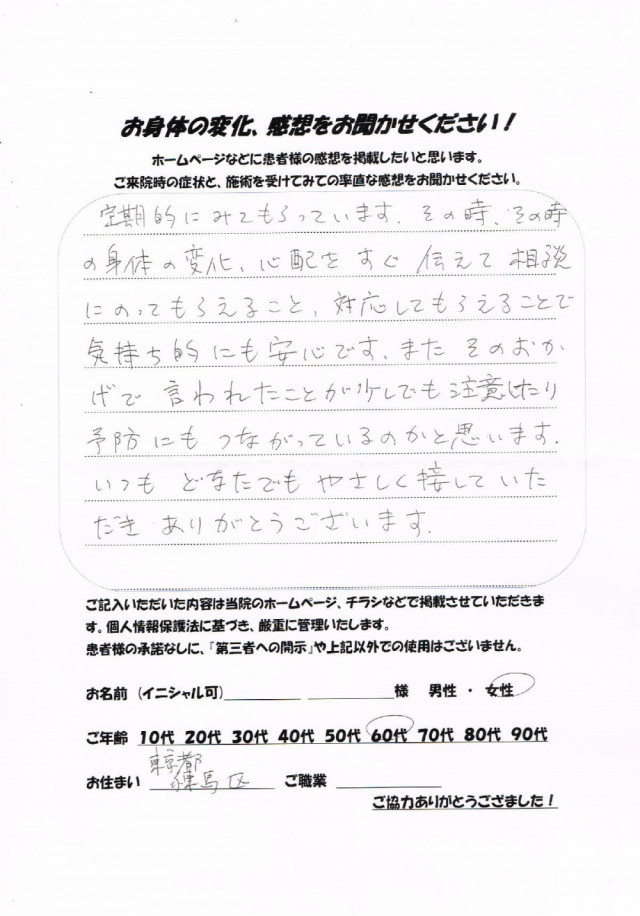 お身体の変化、感想をお聞かせください！
ホームページなどに患者様の感想を掲載したいと思います。
ご来院時の症状と、施術を受けてみての率直な感想をお聞かせください。
定期的にみてもらっています。その時、その時
の身体の変化、心配をすぐ伝えて相談
にのってもらえること、対応してもらえることで
気持ち的にも安心です。また そのおか
げで 言われたことが少しでも注意したり
予防にもつながっているのかと思います。
いつも どなたでも やさしく接していた
だき ありがとうございます。
ご記入いただいた内容は当院のホームページ、チラシなどで掲載させていただきま
す。個人情報保護法に基づき、厳重に管理いたします。
患者様の承諾なしに、『第三者への開示』や上記以外での使用はございません。
お名前（イニシャル可）__________ __________様 男性 ・ 女性
ご年齢 10代 20代 30代 40代 50代 60代 70代 80代 90代
お住まい 東京都練馬区 ご職業 __________
ご協力ありがとうござました！